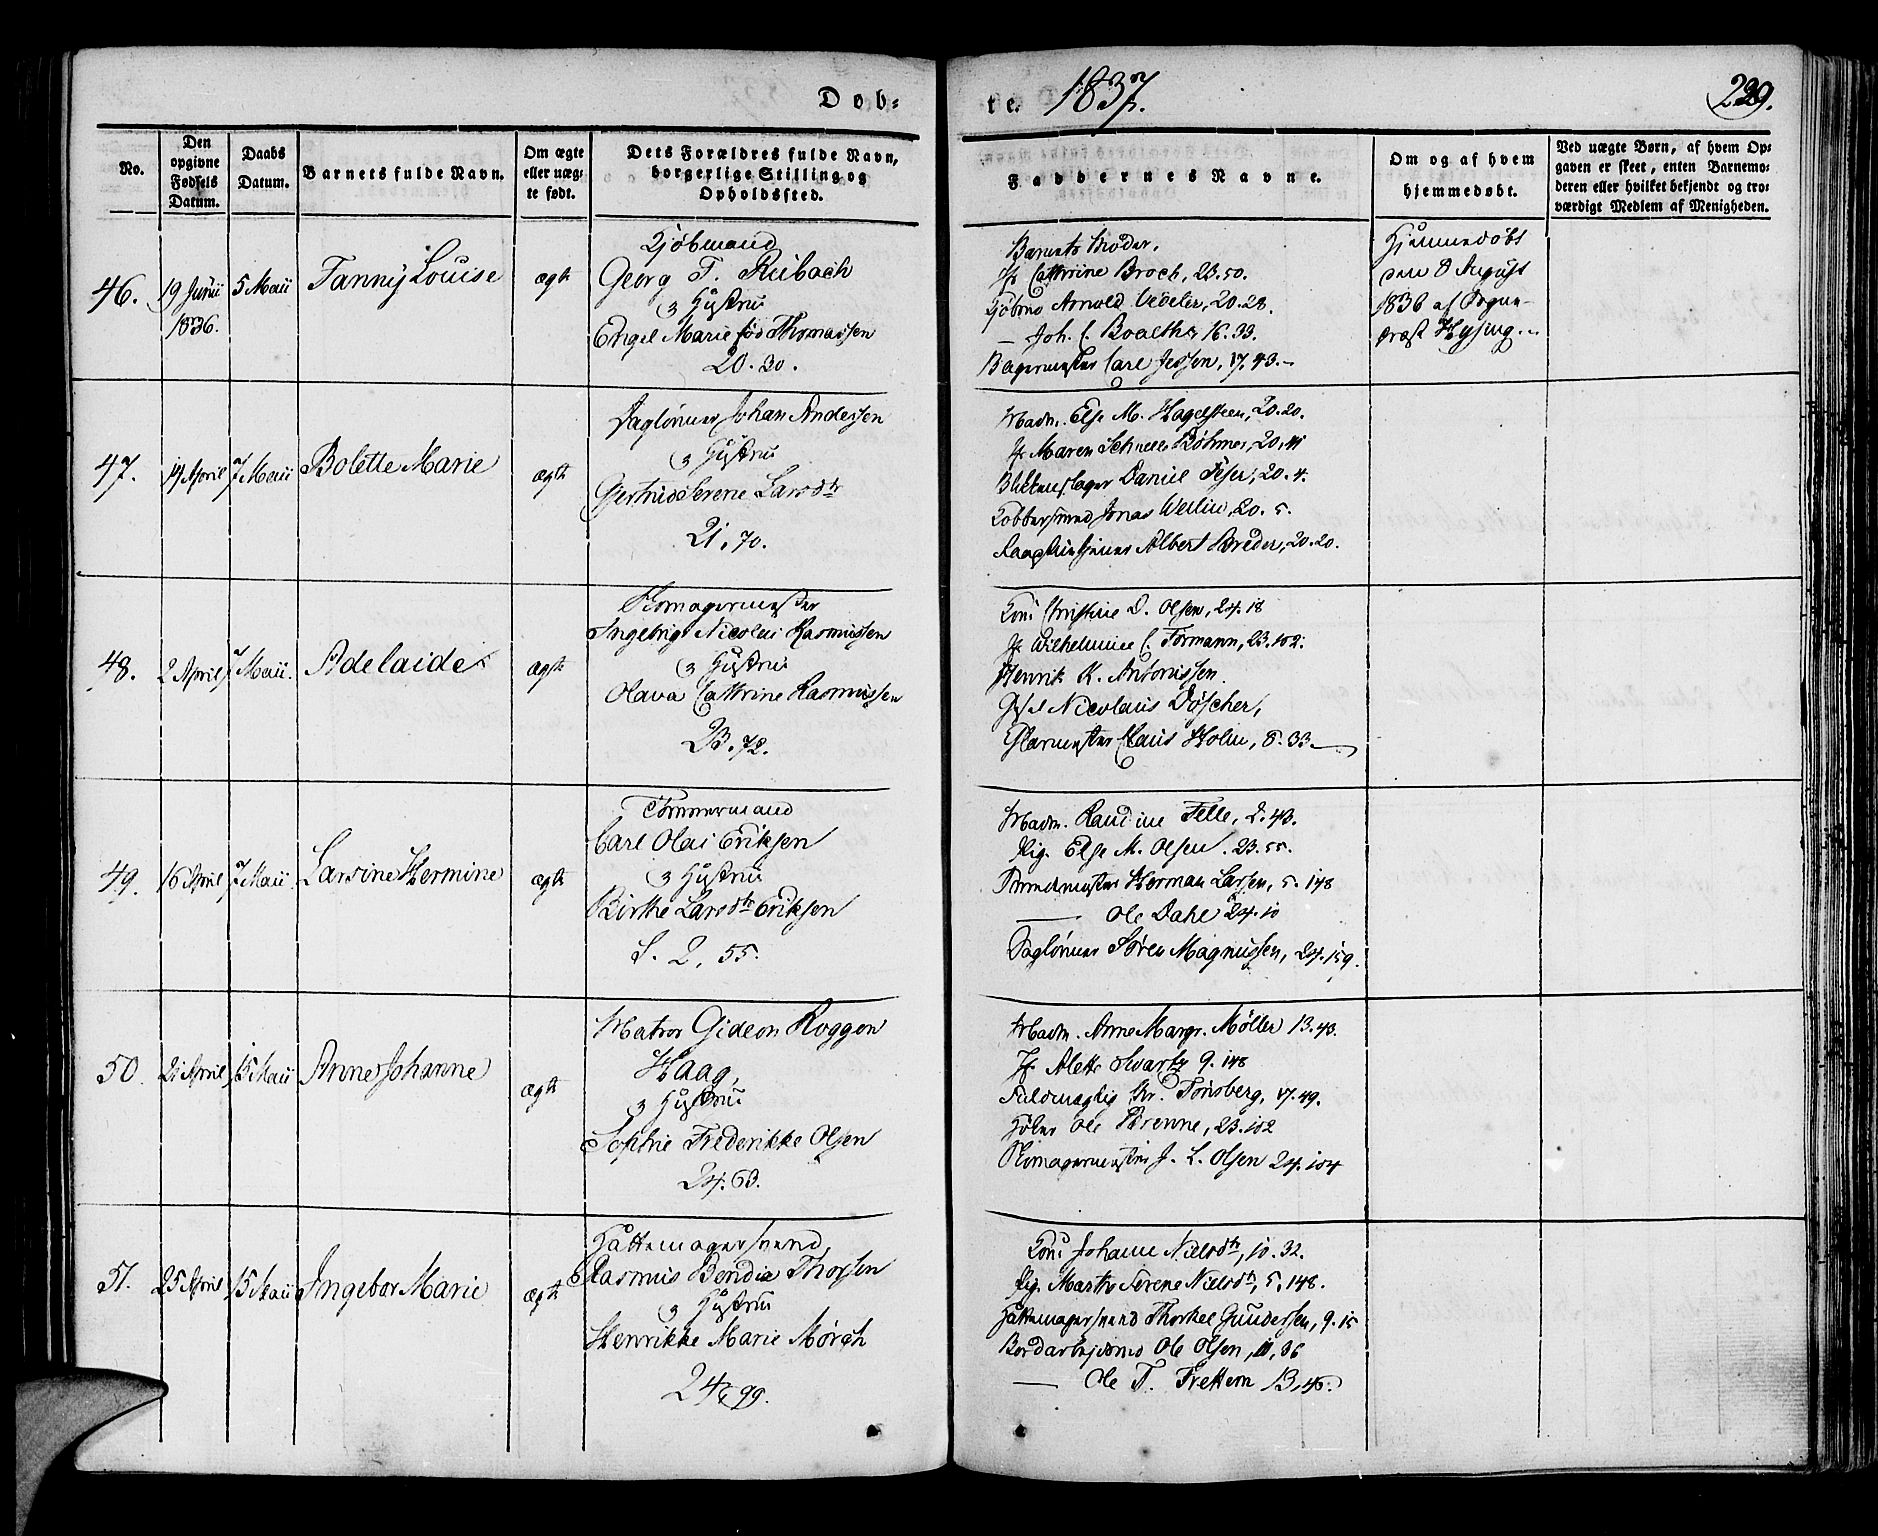 Døb-
te. 1837.
229.
No.
Den opgivne Fødsels Datum.
Daabs Datum.
Barnets fulde Navn.
Om ægte eller uægte født.
Dets Forældres fulde Navn,
borgerlige Stilling og
Opholdssted.
Faddernes Navne.
Om og af hvem
hjemmedøbt.
Ved uægte Børn, af hvem Op-
gaven er skeet, enten Barnemo-
deren eller hvilket bekjendt og tro-
værdigt Medlem af Menigheden.
46.
19 Junii
1836.
5 Maii
Fanny Louise
ægte
Kjøbmand
Georg F. Rubach
& Hustru
Engel Marie fød Thomassen
20.30.
Barnets Moder.
Jfr Cathrine Broch, 23.50.
Kjøbmd Arnold Vedeler, 20.28.
— Joh. C. Boalth 16.33.
Bagermester Carl Jessen, 17.43.
Hjemmedøbt
den 8 August
1836 af Sogne-
præst Hysing.
47.
19 April
7 Maii
Bolette Marie
ægte
Dagløner Johan Andersen
& Hustru
Gjertrud Serene Larsdtr
21.70.
Madm. Else M. Hagelsteen, 20.20.
Jfr Maren Böhmer, 20.
Blikkenslager Daniel 20.4.
Kobbersmed Jonas Wellin, 20.5.
Albert 20.20.
48.
2 April
7 Maii.
Adelaide
ægte
Skomagermester
Ingebrigt Nicolai Rasmussen
& Hustru
Olava Cathrine Rasmussen
23.72.
Kone Christine D. Olsen, 24.18
Jfr Wilhelmine C. Formann, 23.102.
Henrik K. Antonissen.
Nicolaus Döscher,
Glarmester Claus Holm, 8.33
49.
16 April
7 Maii
Larsine Hermine
ægte
Tømmermand
Carl Olai Eriksen
& Hustru
Birthe Larsdtr Eriksen
S. 2, 55.
Madm. Randine Felle, 2.43.
Pig. Else M. Olsen. 23.55.
Herman Larsen, 5.148
— Ole Dahl 24.10
Dagløner Sören Magnussen, 24.159.
50.
21 April
15 Maii
Anne Johanne
ægte
Matros Gideon Roggen
Haag,
& Hustru
Sophie Frederikke Olsen
24.63.
Madm. Anne Margr. Møller 13.43.
Jfr Alette Svartz 9.148
Fuldmægtig Kr. Tönsberg, 17.49.
Ole Brenne, 23.102
Skomagermester J. L. Olsen 24.104
51.
25 April
15 Maii
Ingebor Marie
ægte
Hattemagersvend,
Rasmus Bendix Thorsen
& Hustru
Henrikke Marie Mörch
24, 99.
Kone Johanne Nielsdtr, 10.32.
Pig. Marthe Serene Nielsdtr, 5.148.
Hattemagersvend Thorkel Gundersen, 9.15
Bordarbejdsmd Ole Olsen, 11,36
— Ole T. Frettem 13,45.